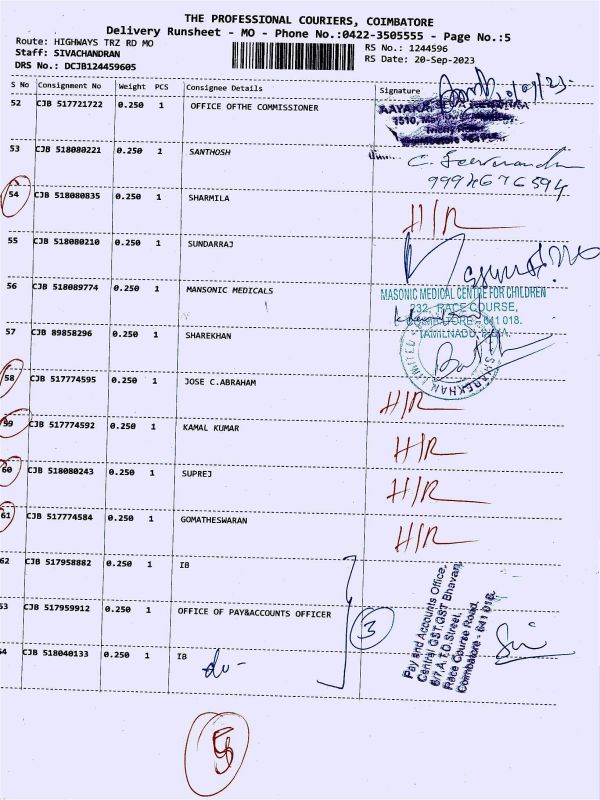 THE PROFESSIONAL COURIERS, COIMBATORE
Delivery Runsheet - MO - Phone No.:0422-3505555 - Page No.:5
Route: HIGHWAYS TRZ RD MO
RS No.: 1244596
Staff: SIVACHANDRAN
RS Date: 20-Sep-2023
DRS No.: DCJB124459605
S No Consignment No Weight PCS Consignee Details Signature
52 CJB 517721722 0.250 1 OFFICE OFTHE COMMISSIONER
53 CJB 518080221 0.250 1 SANTHOSH
9994676594
54 CJB 518080835 0.250 1 SHARMILA H/R
55 CJB 518080210 0.250 1 SUNDARRAJ
56 CJB 518089774 0.250 1 MANSONIC MEDICALS
MASONIC MEDICAL CENTRE FOR CHILDREN
232, RACE COURSE,
COIMBATORE - 641 018.
TAMILNADU, INDIA.
57 CJB 89858296 0.250 1 SHAREKHAN
SHAREKHAN LIMITED
58 CJB 517774595 0.250 1 JOSE C.ABRAHAM H/R
59 CJB 517774592 0.250 1 KAMAL KUMAR H/R
60 CJB 518080243 0.250 1 SUPREJ H/R
61 CJB 517774584 0.250 1 GOMATHESWARAN H/R
62 CJB 517958882 0.250 1 IB
53 CJB 517959912 0.250 1 OFFICE OF PAY&ACCOUNTS OFFICER
3
Pay and Accounts Office,
Central GST,GST Bhavan,
6/7,A.T.D.Street,
Race Course Road,
Coimbatore - 641 018
54 CJB 518040133 0.250 1 IB
do-